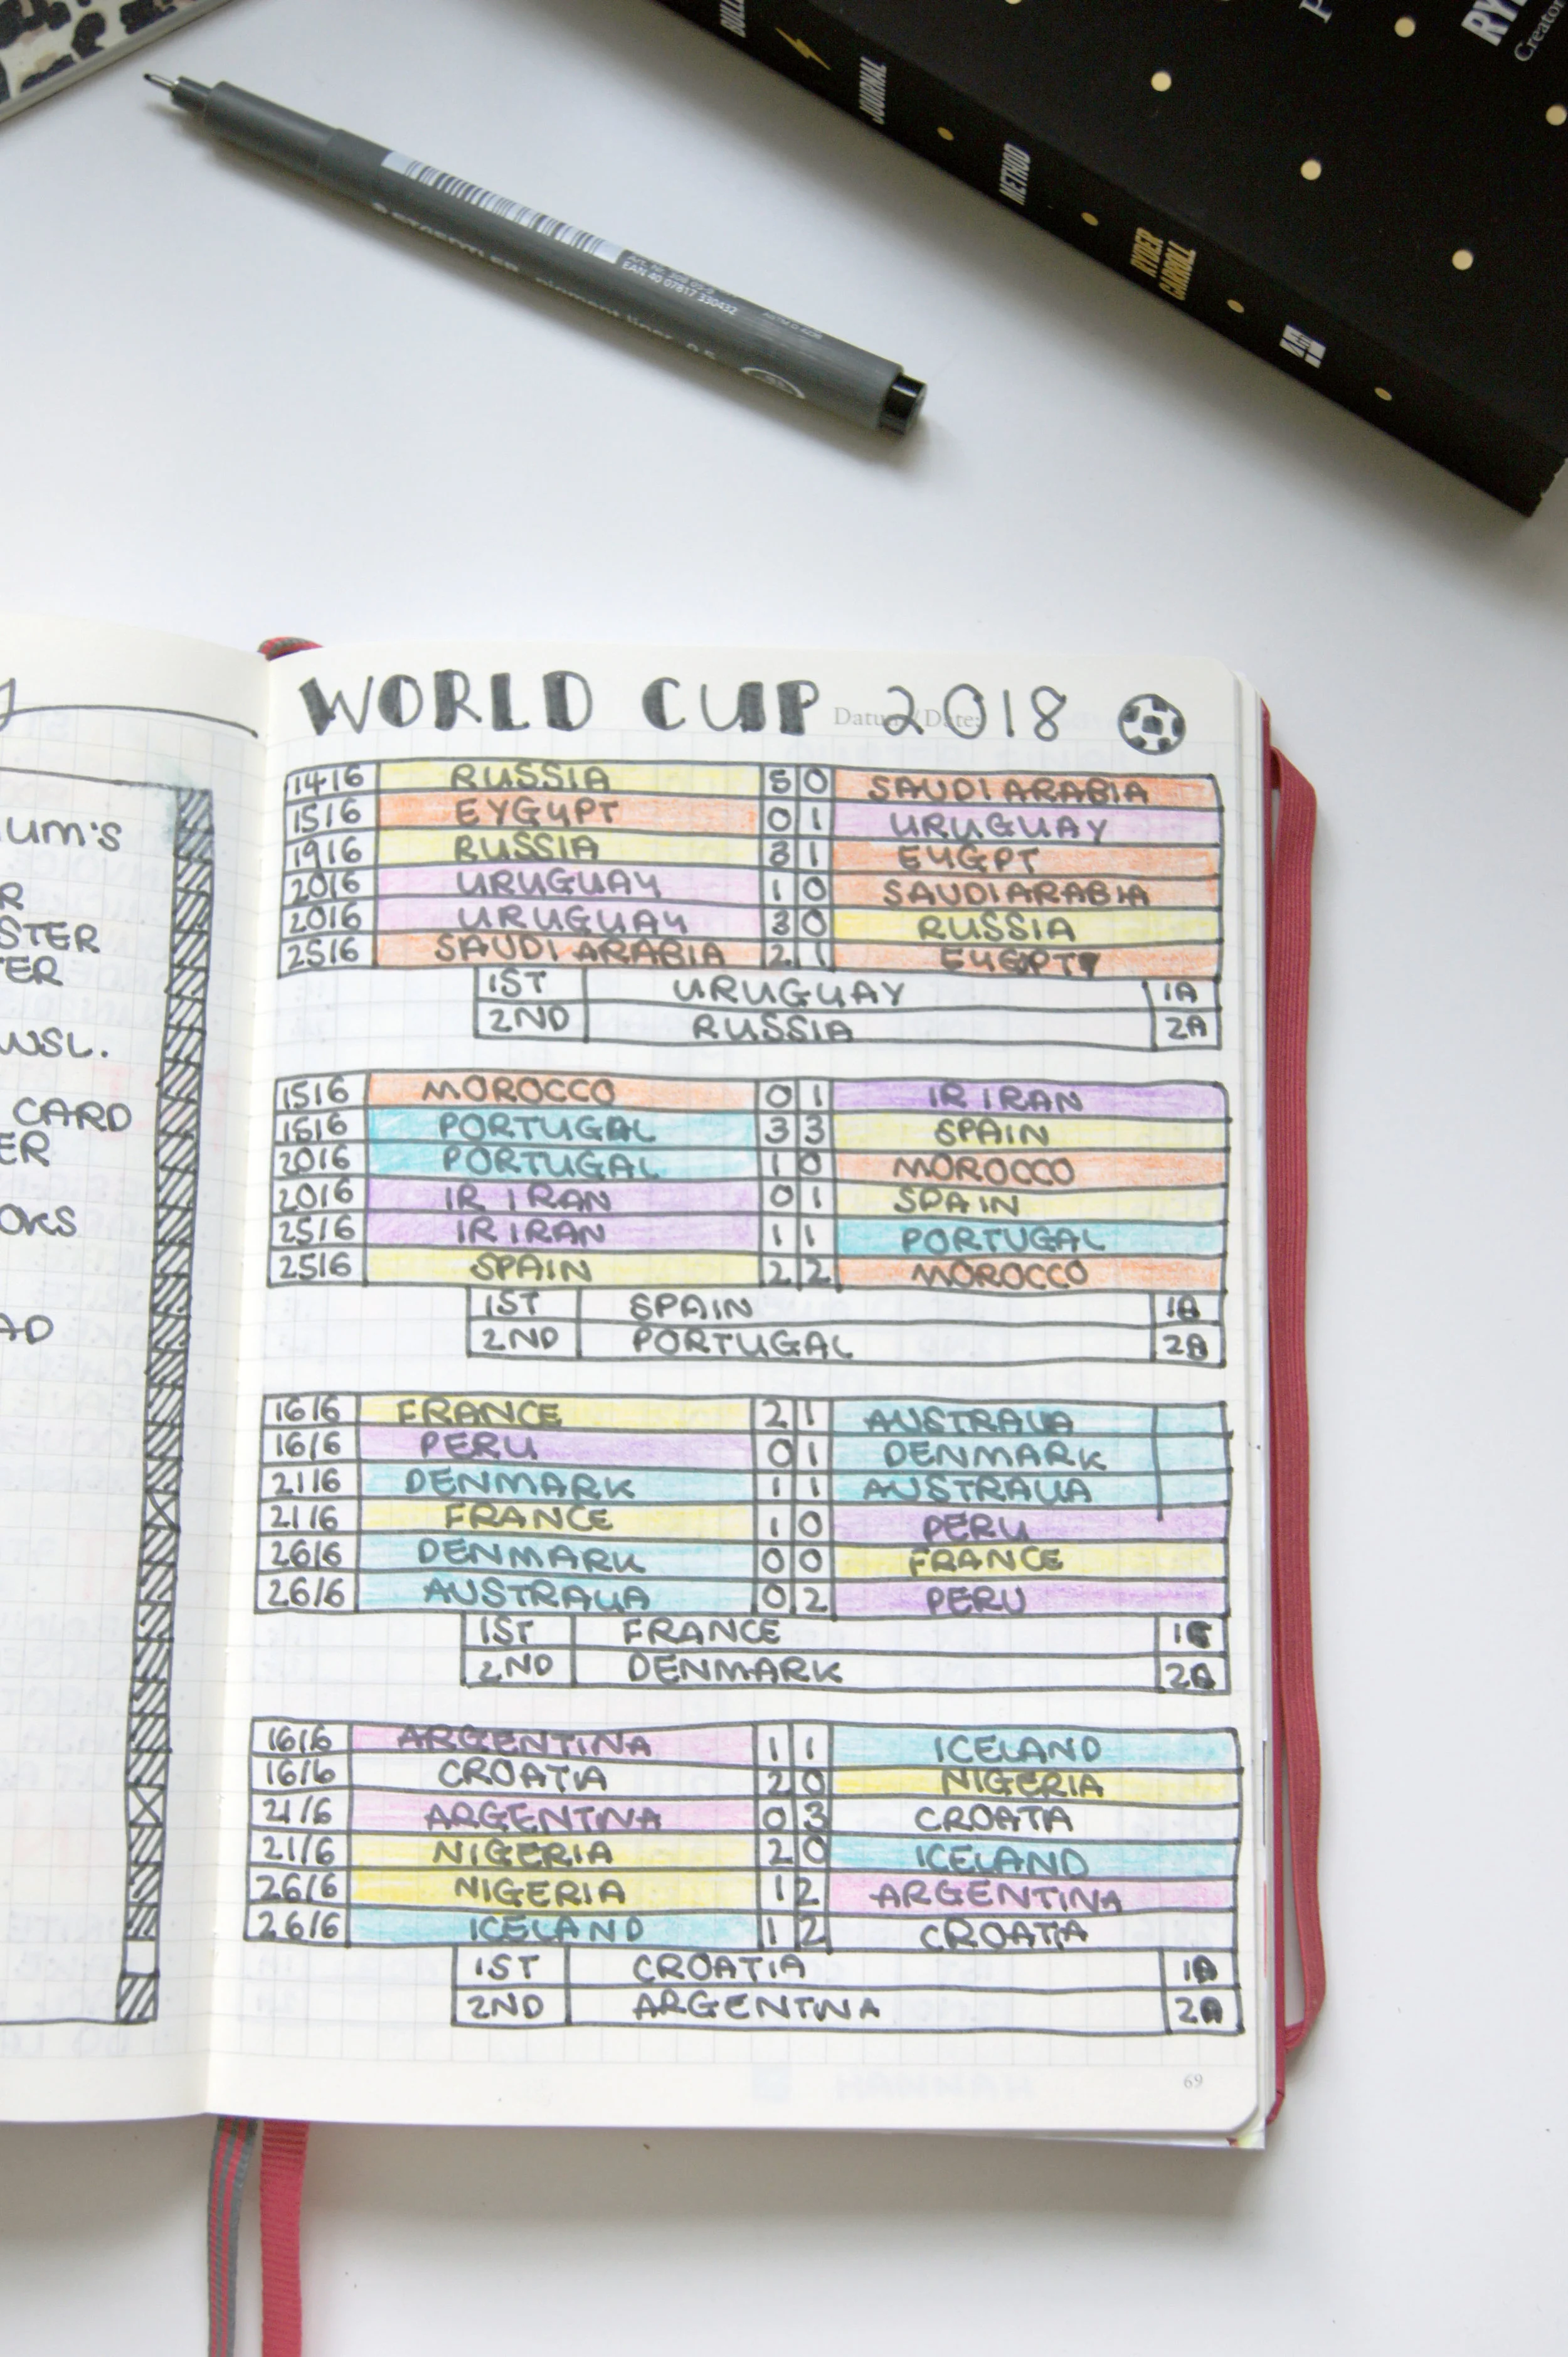 BULLET JOURNAL METHOD RYDER CARROLL
Creator
STAEDTLER pigment liner 0.5
EAN 40 07817 330432
WORLD CUP 2018
Datum/Date:
14/6 RUSSIA 5 0 SAUDI ARABIA
15/6 EYGYPT 0 1 URUGUAY
19/6 RUSSIA 3 1 EYGPT
20/6 URUGUAY 1 0 SAUDI ARABIA
20/6 URUGUAY 3 0 RUSSIA
25/6 SAUDI ARABIA 2 1 EYGPT
1ST URUGUAY 1A
2ND RUSSIA 2A
15/6 MOROCCO 0 1 IR IRAN
15/6 PORTUGAL 3 3 SPAIN
20/6 PORTUGAL 1 0 MOROCCO
20/6 IR IRAN 0 1 SPAIN
25/6 IR IRAN 1 1 PORTUGAL
25/6 SPAIN 2 2 MOROCCO
1ST SPAIN 1B
2ND PORTUGAL 2B
16/6 FRANCE 2 1 AUSTRALIA
16/6 PERU 0 1 DENMARK
21/6 DENMARK 1 1 AUSTRALIA
21/6 FRANCE 1 0 PERU
26/6 DENMARK 0 0 FRANCE
26/6 AUSTRALIA 0 2 PERU
1ST FRANCE 1C
2ND DENMARK 2C
16/6 ARGENTINA 1 1 ICELAND
16/6 CROATIA 2 0 NIGERIA
21/6 ARGENTINA 0 3 CROATIA
21/6 NIGERIA 2 0 ICELAND
26/6 NIGERIA 1 2 ARGENTINA
26/6 ICELAND 1 2 CROATIA
1ST CROATIA 1D
2ND ARGENTINA 2D
69
UM'S
R
STER
TER
WSL.
CARD
ER
OKS
AD